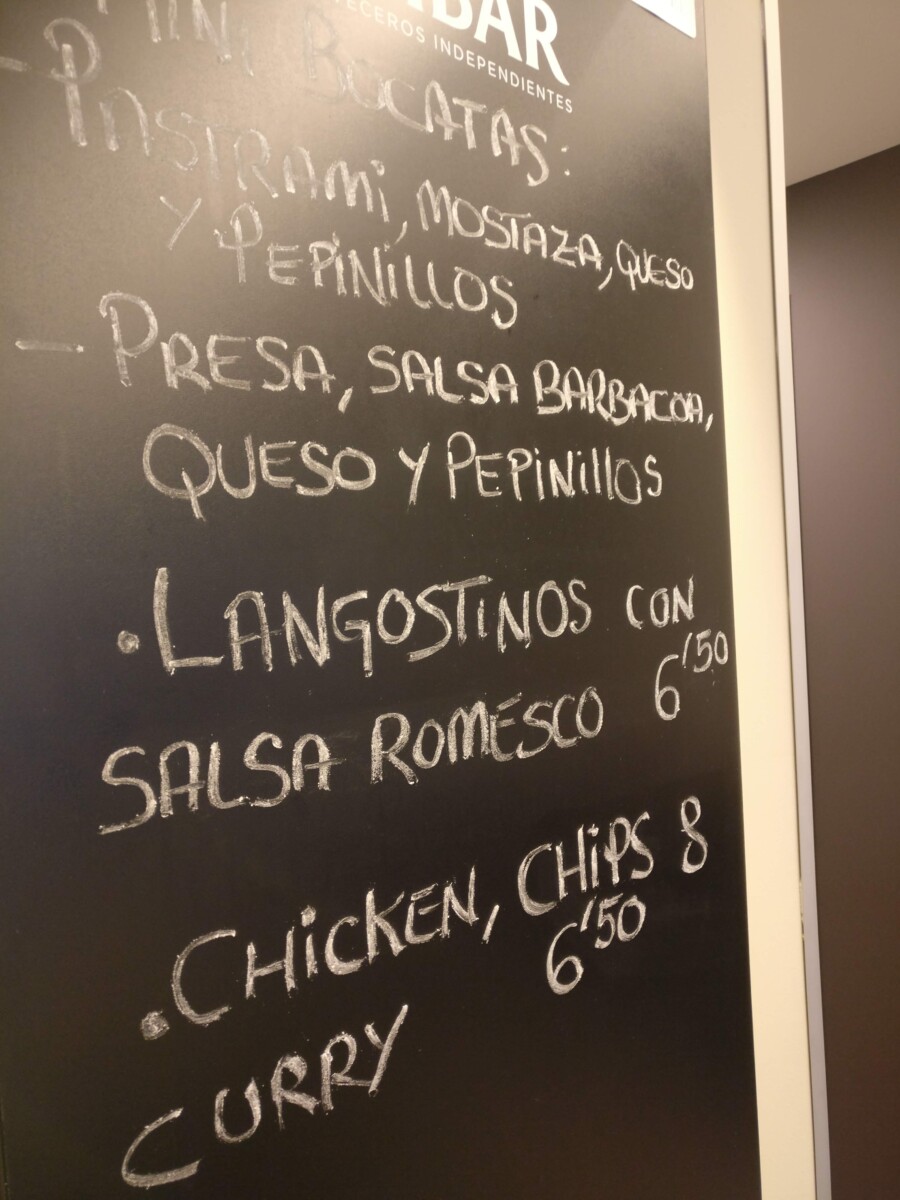 BAR
CECEROS INDEPENDIENTES
MINI BOCATAS:
- PASTRAMI, MOSTAZA, QUESO
Y PEPINILLOS
- PRESA, SALSA BARBACOA,
QUESO Y PEPINILLOS
· LANGOSTINOS CON
SALSA ROMESCO 6'50
· CHICKEN, CHIPS &
CURRY 6'50